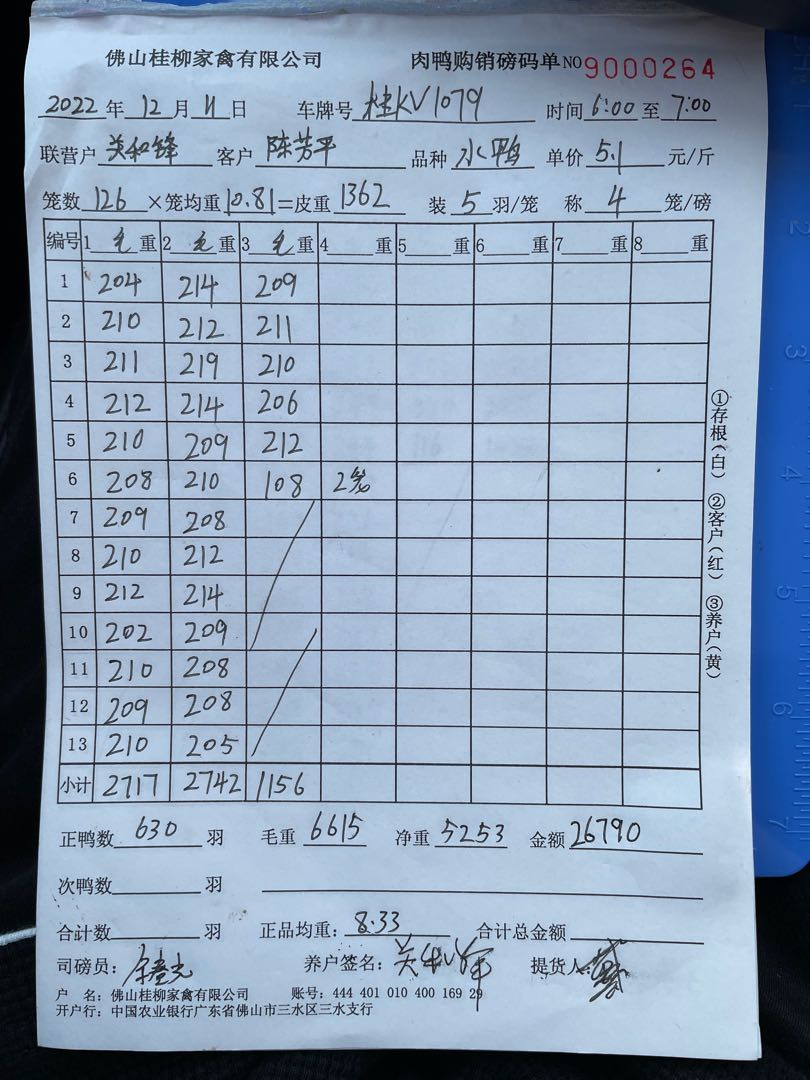 佛山桂柳家禽有限公司 肉鸭购销磅码单NO 9000264
2022年12月11日 车牌号 桂KV1079 时间 6:00至7:00
联营户 关和锋 客户 陈芳平 品种 水鸭 单价 5.1 元/斤
笼数 126 ×笼均重 10.81=皮重 1362 装 5 羽/笼 称 4 笼/磅
编号 1 毛 重 2 毛 重 3 毛 重 4 重 5 重 6 重 7 重 8 重
1 204 214 209
2 210 212 211
3 211 219 210
4 212 214 206
5 210 209 212
6 208 210 108 2笼
7 209 208
8 210 212
9 212 214
10 202 209
11 210 208
12 209 208
13 210 205
小计 2717 2742 1156
正鸭数 630 羽 毛重 6615 净重 5253 金额 26790
次鸭数 羽
合计数 羽 正品均重: 8.33 合计总金额
司磅员: 养户签名: 提货人:
户 名: 佛山桂柳家禽有限公司 账号: 444 401 010 400 169 29
开户行: 中国农业银行广东省佛山市三水区三水支行
①存根(白) ②客户(红) ③养户(黄)